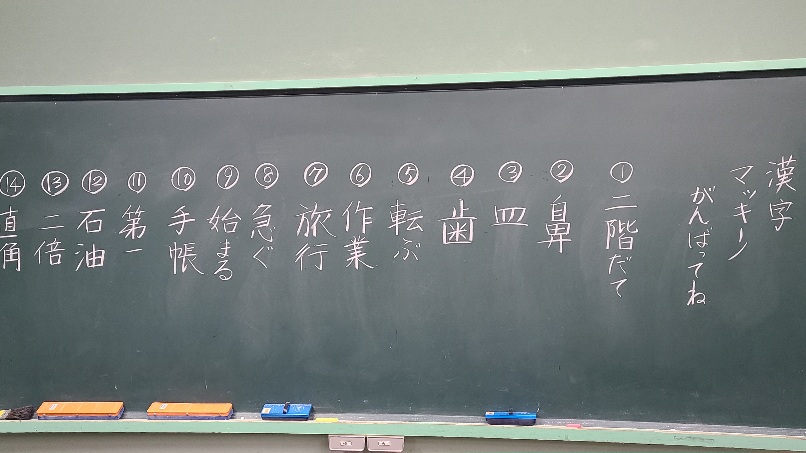 漢字
マッキーノ
がんばってね
①二階だて
②鼻
③皿
④歯
⑤転ぶ
⑥作業
⑦旅行
⑧急ぐ
⑨始まる
⑩手帳
⑪第一
⑫石油
⑬二倍
⑭直角